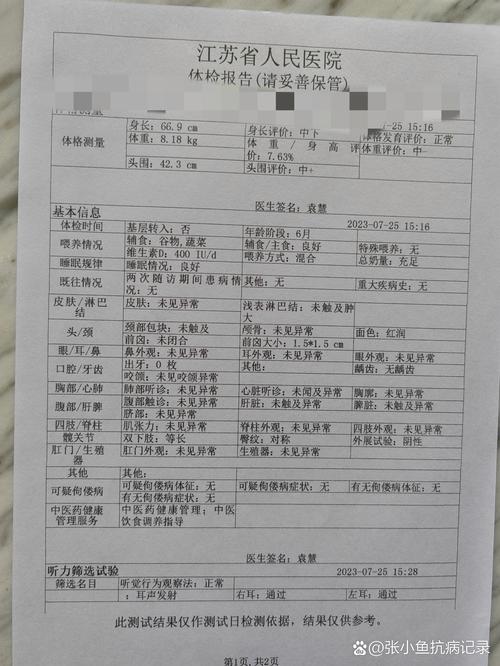 江苏省人民医院
体检报告(请妥善保管)
体格测量
-25 15:16
身长: 66.9 cm 身长评价: 中下 体格发育评价: 正常
体格测量 体重: 8.18 kg 体重/身高评价: 7.63% 体重评价: 中-
头围: 42.3 cm 头围评价: 中+
医生签名: 袁慧
基本信息 2023-07-25 15:16
体检时间 基层转入: 否 年龄阶段: 6月
喂养情况 辅食: 谷物,蔬菜 辅食/主食: 良好 特殊喂养: 无
维生素D: 400 IU/d 喂养方式: 混合 总奶量: 充足
睡眠规律 睡眠情况: 良好
既往情况 两次随访期间患病情况: 无 其他: 无 重大疾病史: 无
皮肤/淋巴结 皮肤: 未见异常 浅表淋巴结: 未触及肿大
头/颈 颈部包块: 未触及 颅骨: 未见异常 面色: 红润
前囟: 未闭合 前囟大小: 1.5*1.5 cm
眼/耳/鼻 鼻外观: 未见异常 耳外观: 未见异常 眼外观: 未见异常
口腔/牙齿 出牙: 0 枚 其他: 龋齿: 无龋齿
咬颌: 未见咬颌异常
胸部/心肺 肺部听诊: 未见异常 心脏听诊: 未闻及异常 胸廓: 未见异常
腹部/肝脾 腹部触诊: 未见异常 肝脏: 未触及异常 脾脏: 未触及异常
脐部: 未见异常
四肢/脊柱 肌张力: 未见异常 脊柱外观: 未见异常 四肢外观: 未见异常
髋关节 双下肢: 等长 臀纹: 对称 外展试验: 阴性
肛门/生殖器 肛门外观: 未见异常 生殖器: 未见异常
其他 其他:
可疑佝偻病 可疑佝偻病体征: 无 可疑佝偻病症状: 无 有无佝偻病体征: 无
有无佝偻病症状: 无
中医药健康管理服务 中医药健康管理: 中医饮食调养指导
医生签名: 袁慧
听力筛选试验 2023-07-25 15:28
筛选名目 听觉行为观察法: 正常
: 耳声发射 右耳: 通过 左耳: 通过
此测试结果仅作测试日检测依据，结果仅供参考。
第1页, 共2页
张小鱼抗病记录